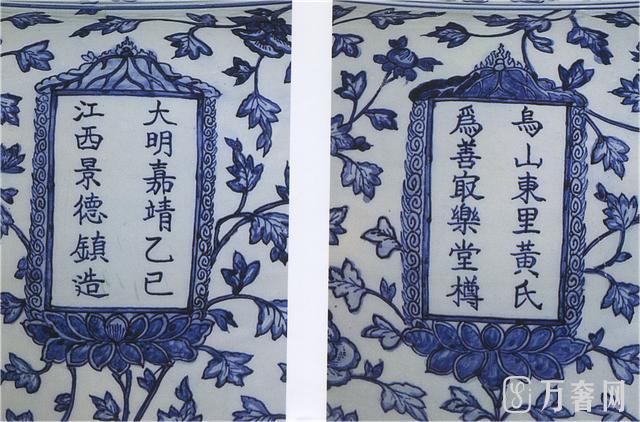 大明嘉靖乙巳
江西景德鎮造
烏山東里黃氏
爲善㝡樂堂樽
万奢网